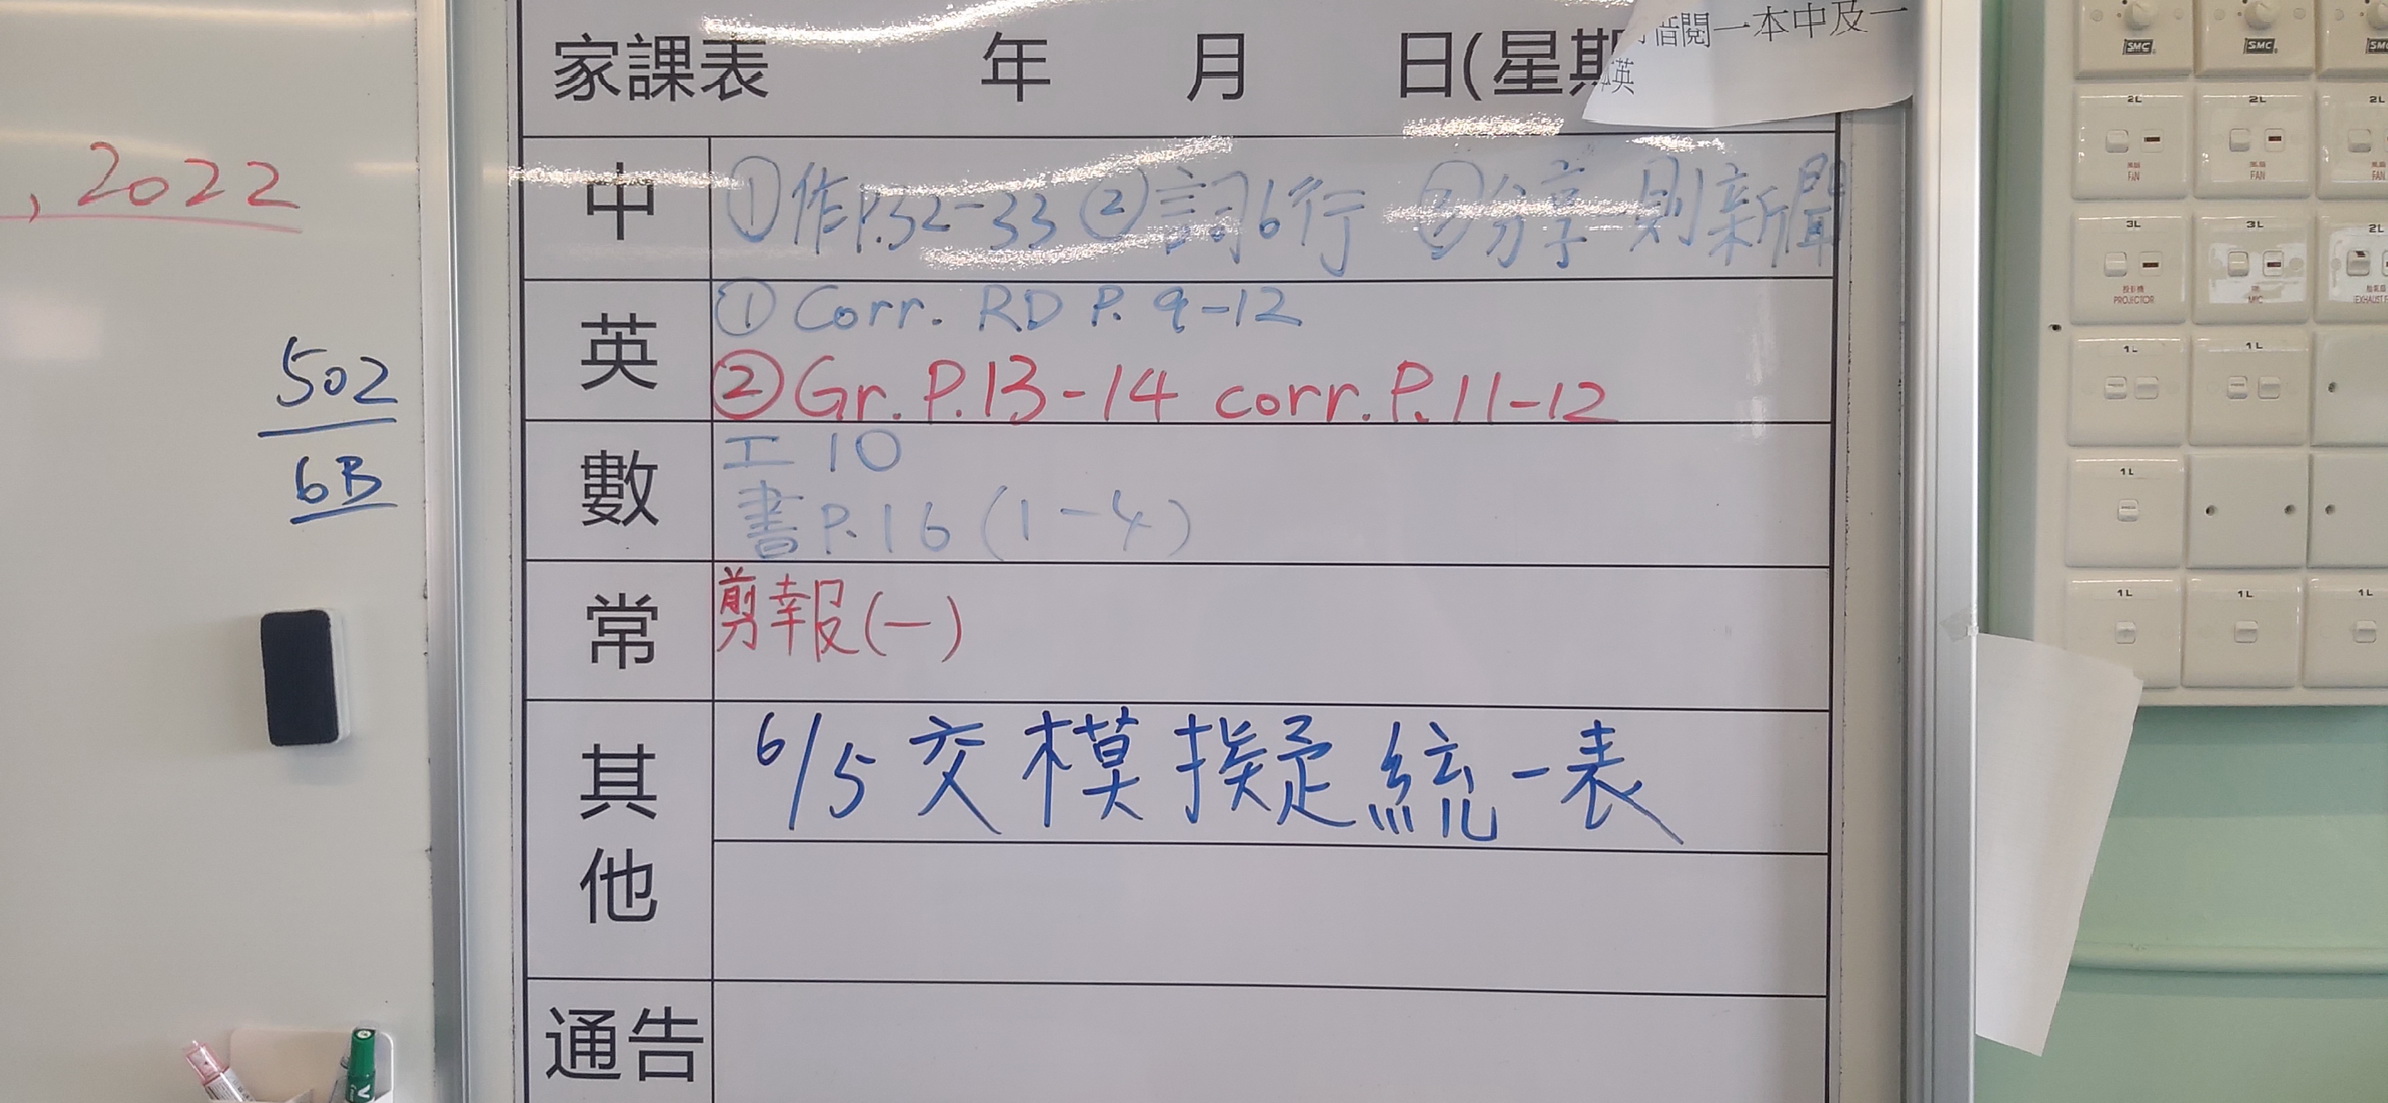 家課表 年 月 日(星期
借閱一本中及一
英
, 2022
502
6B
中 ①作P.32-33 ②詞6行 ③分享一則新聞
英 ① Corr. RD P. 9-12
② Gr. P.13-14 corr. P. 11-12
數 工 10
書 P.16 (1-4)
常 剪報(一)
其他 6/5 交模擬統一表
通告
SMC SMC SMC
2L 2L 2L
FAN FAN FAN
3L 3L 2L
投影機
PROJECTOR MIC
1L 1L
1L
1L 1L 1L